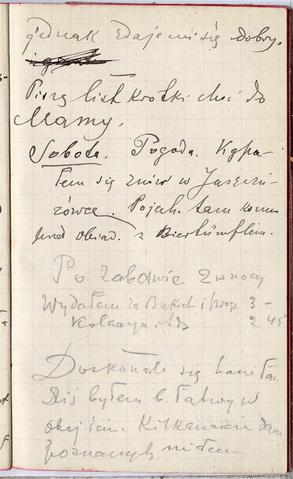 jednak zdaje mi się dobry.
Piszę list krótki choć do
Mamy.
Sobota. Pogoda. Kąpa-
łem się znów w Jaszczu-
rówce. Pojech. tam konno
przed obiad. z
Po zabawie z nocy
Wydałem za Bukiet i 3 -
Kolacya 2 45
Doskonale się bawiłem
Dziś byłem b. łatwy w
obejściu. Kilkanaście dam
poznanych miałem.